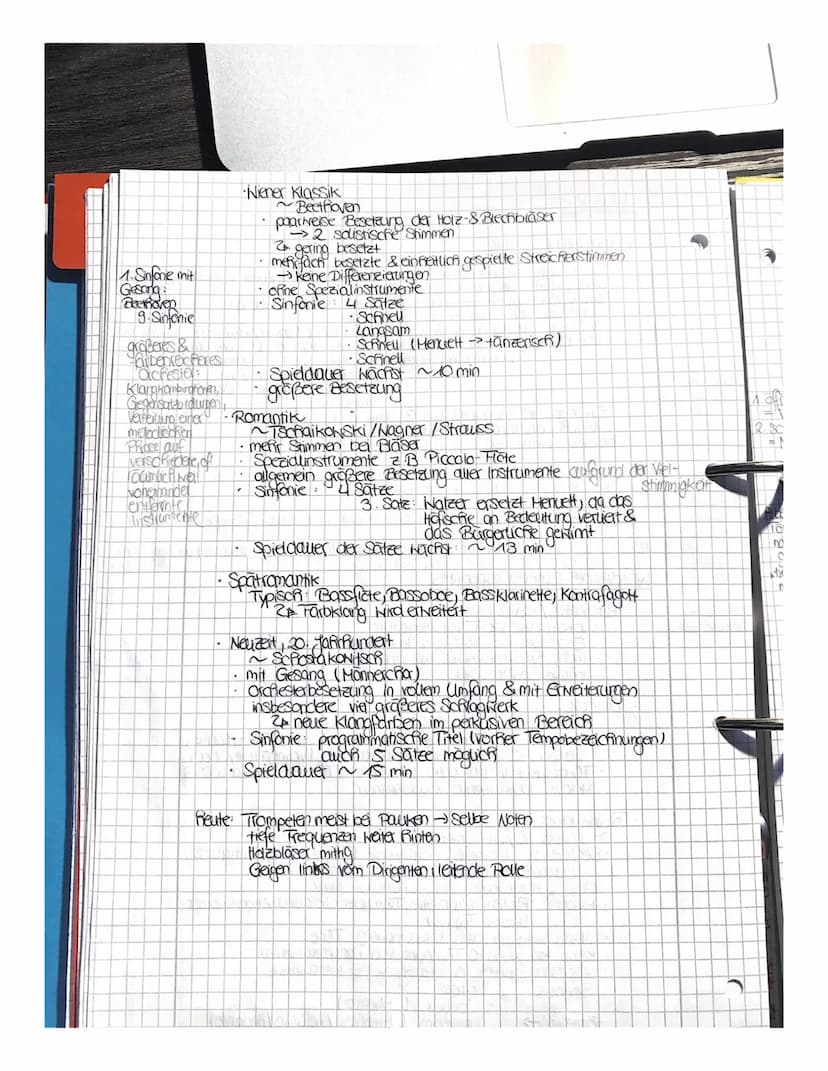 · Wiener Klassik
~ Beethoven
· paarweise Besetzung der Holz- & Blechbläser
→ 2 solistische Stimmen
↳ gering besetzt
· mehrfach besetzte & einheitlich gespielte Streicherstimmen
→ keine Differenzierungen
· ohne Spezialinstrumente
· Sinfonie: 4 Sätze
· Schnell
· Langsam
· Schnell (Menuett → tänzerisch)
· Schnell
· Spieldauer wächst ~10 min
· größere Besetzung
1. Sinfonie mit
Gesang:
Beethoven
9. Sinfonie
größeres &
farbenreicheres
Orchester:
Klangkombinationen,
Gegensatzbildungen,
Verteilung einer
melodischen
Phrase auf
verschiedene, oft
räumlich weit
voneinander
entfernte
Instrumente
· Romantik
~ Tschaikowski / Wagner / Strauss
· mehr Stimmen bei Bläser
· Spezialinstrumente z.B Piccolo-Flöte
· allgemein größere Besetzung aller Instrumente aufgrund der Viel-
stimmigkeit
· Sinfonie: 4 Sätze
3. Satz: Walzer ersetzt Menuett, da das
Höfische an Bedeutung verliert &
das Bürgerliche gewinnt
· Spieldauer der Sätze wächst: ~ 13 min
· Spätromantik
Typisch: Bassflöte, Bassoboe, Bassklarinette, Kontrafagott
↳ Farbklang wird erweitert
· Neuzeit, 20. Jahrhundert
~ Schostakowitsch
· mit Gesang (Männerchor)
· Orchesterbesetzung in vollem Umfang & mit Erweiterungen
insbesondere viel größeres Schlagwerk
↳ neue Klangfarben im perkusiven Bereich
· Sinfonie: programmatische Titel (vorher Tempobezeichnungen)
auch 5 Sätze möglich
· Spieldauer ~ 15 min
Heute: Trompeten meist bei Pauken → selbe Noten
tiefe Frequenzen weiter hinten
Holzbläser mittig
Geigen links vom Dirigenten, leitende Rolle